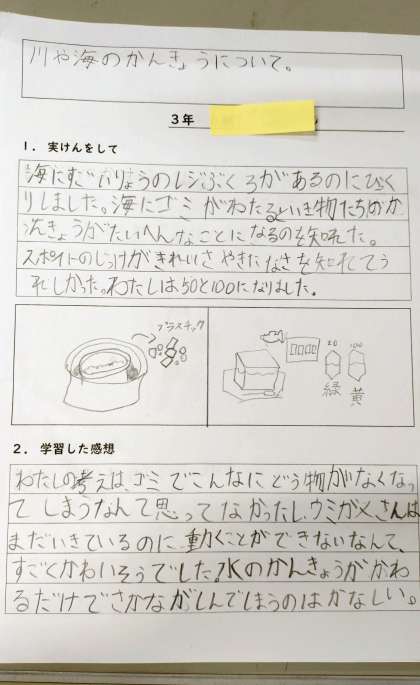 川や海のかんきょうについて。
3年
1. 実けんをして
海にすごいりょうのレジぶくろがあるのにびっく
りしました。海にゴミがわたるといき物たちのか
んきょうがたいへんなことになるのを知れた。
スポイトのじっけんがきれいさやきたなさを知れてう
れしかった。わたしは50と100になりました。
プラスチック
20 100
緑 黄
2. 学習した感想
わたしの考えは、ゴミでこんなにどう物がなくなっ
てしまうなんて思ってなかったし、ウミガメさんは
まだいきているのに、動くことができないなんて、
すごくかわいそうでした。水のかんきょうがかわ
るだけでさかながしんでしまうのはかなしい。